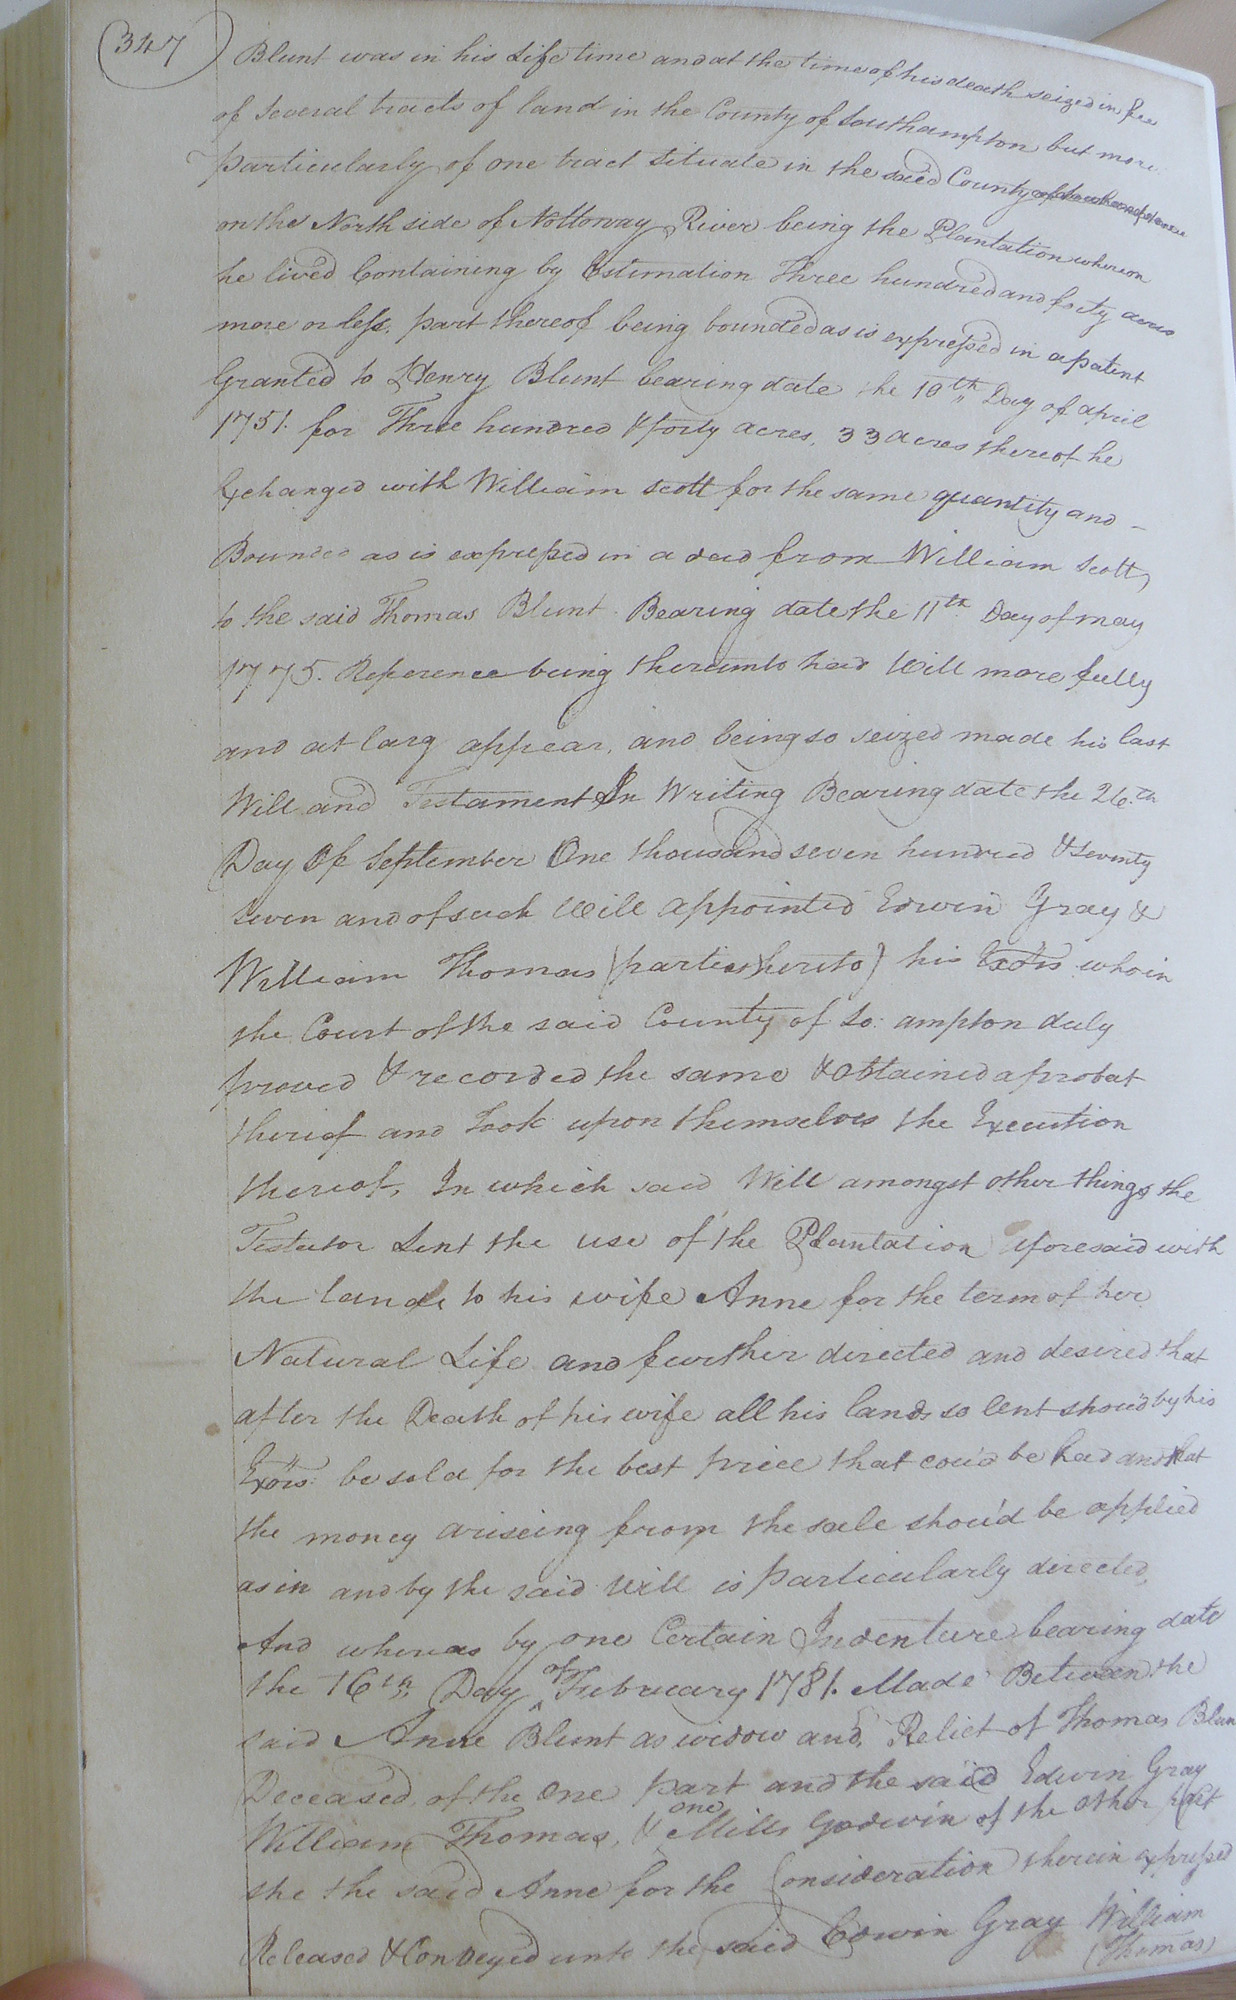 347
Blunt was in his Life time and at the time of his death seized in fee
of Several tracts of land in the County of Southampton but more
particularly of one tract situate in the said County
on the North side of Nottoway River being the Plantation whereon
he lived Containing by Estimation Three hundred and forty acres
more or less, part thereof being bounded as is expressed in a patent
Granted to Henry Blunt bearing date the 10th Day of april
1751. for Three hundred & forty acres, 33 acres thereof he
Exchanged with William Scott for the same quantity and -
Bounded as is expressed in a deed from William Scott,
to the said Thomas Blunt. Bearing date the 11th Day of may
1775. Reference being thereunto had Will more fully
and at larg appear, and being so seized made his last
Will and Testament In Writing Bearing date the 26th
Day Of September One thousand seven hundred & seventy
seven and of such Will appointed Edwin Gray &
William Thomas (parties hereto) his Exors who in
the Court of the said County of So: ampton duly
proved & recorded the same & obtained a probat
thereof and Took upon themselves the Execution
thereof, In which said Will amongst other things the
Testator Lent the use of the Plantation aforesaid with
the lands to his wife Anne for the term of her
Natural Life and further directed and desired that
after the Death of his wife all his lands so lent shou'd by his
Exors: be sold for the best price that cou'd be had and that
the money ariseing from the sale shou'd be applied
as in and by the said Will is particularly directed,
And whereas by one Certain Indenture bearing date
the 16th Day of February 1781. Made Between the
said Anne Blunt as widow and Relict of Thomas Blun
Deceased, of the One part and the said Edwin Gray
William Thomas, & one Mills Godwin of the other part
she the said Anne for the Consideration therein expressed
Released & Conveyed unto the said Edwin Gray William
(Thomas)